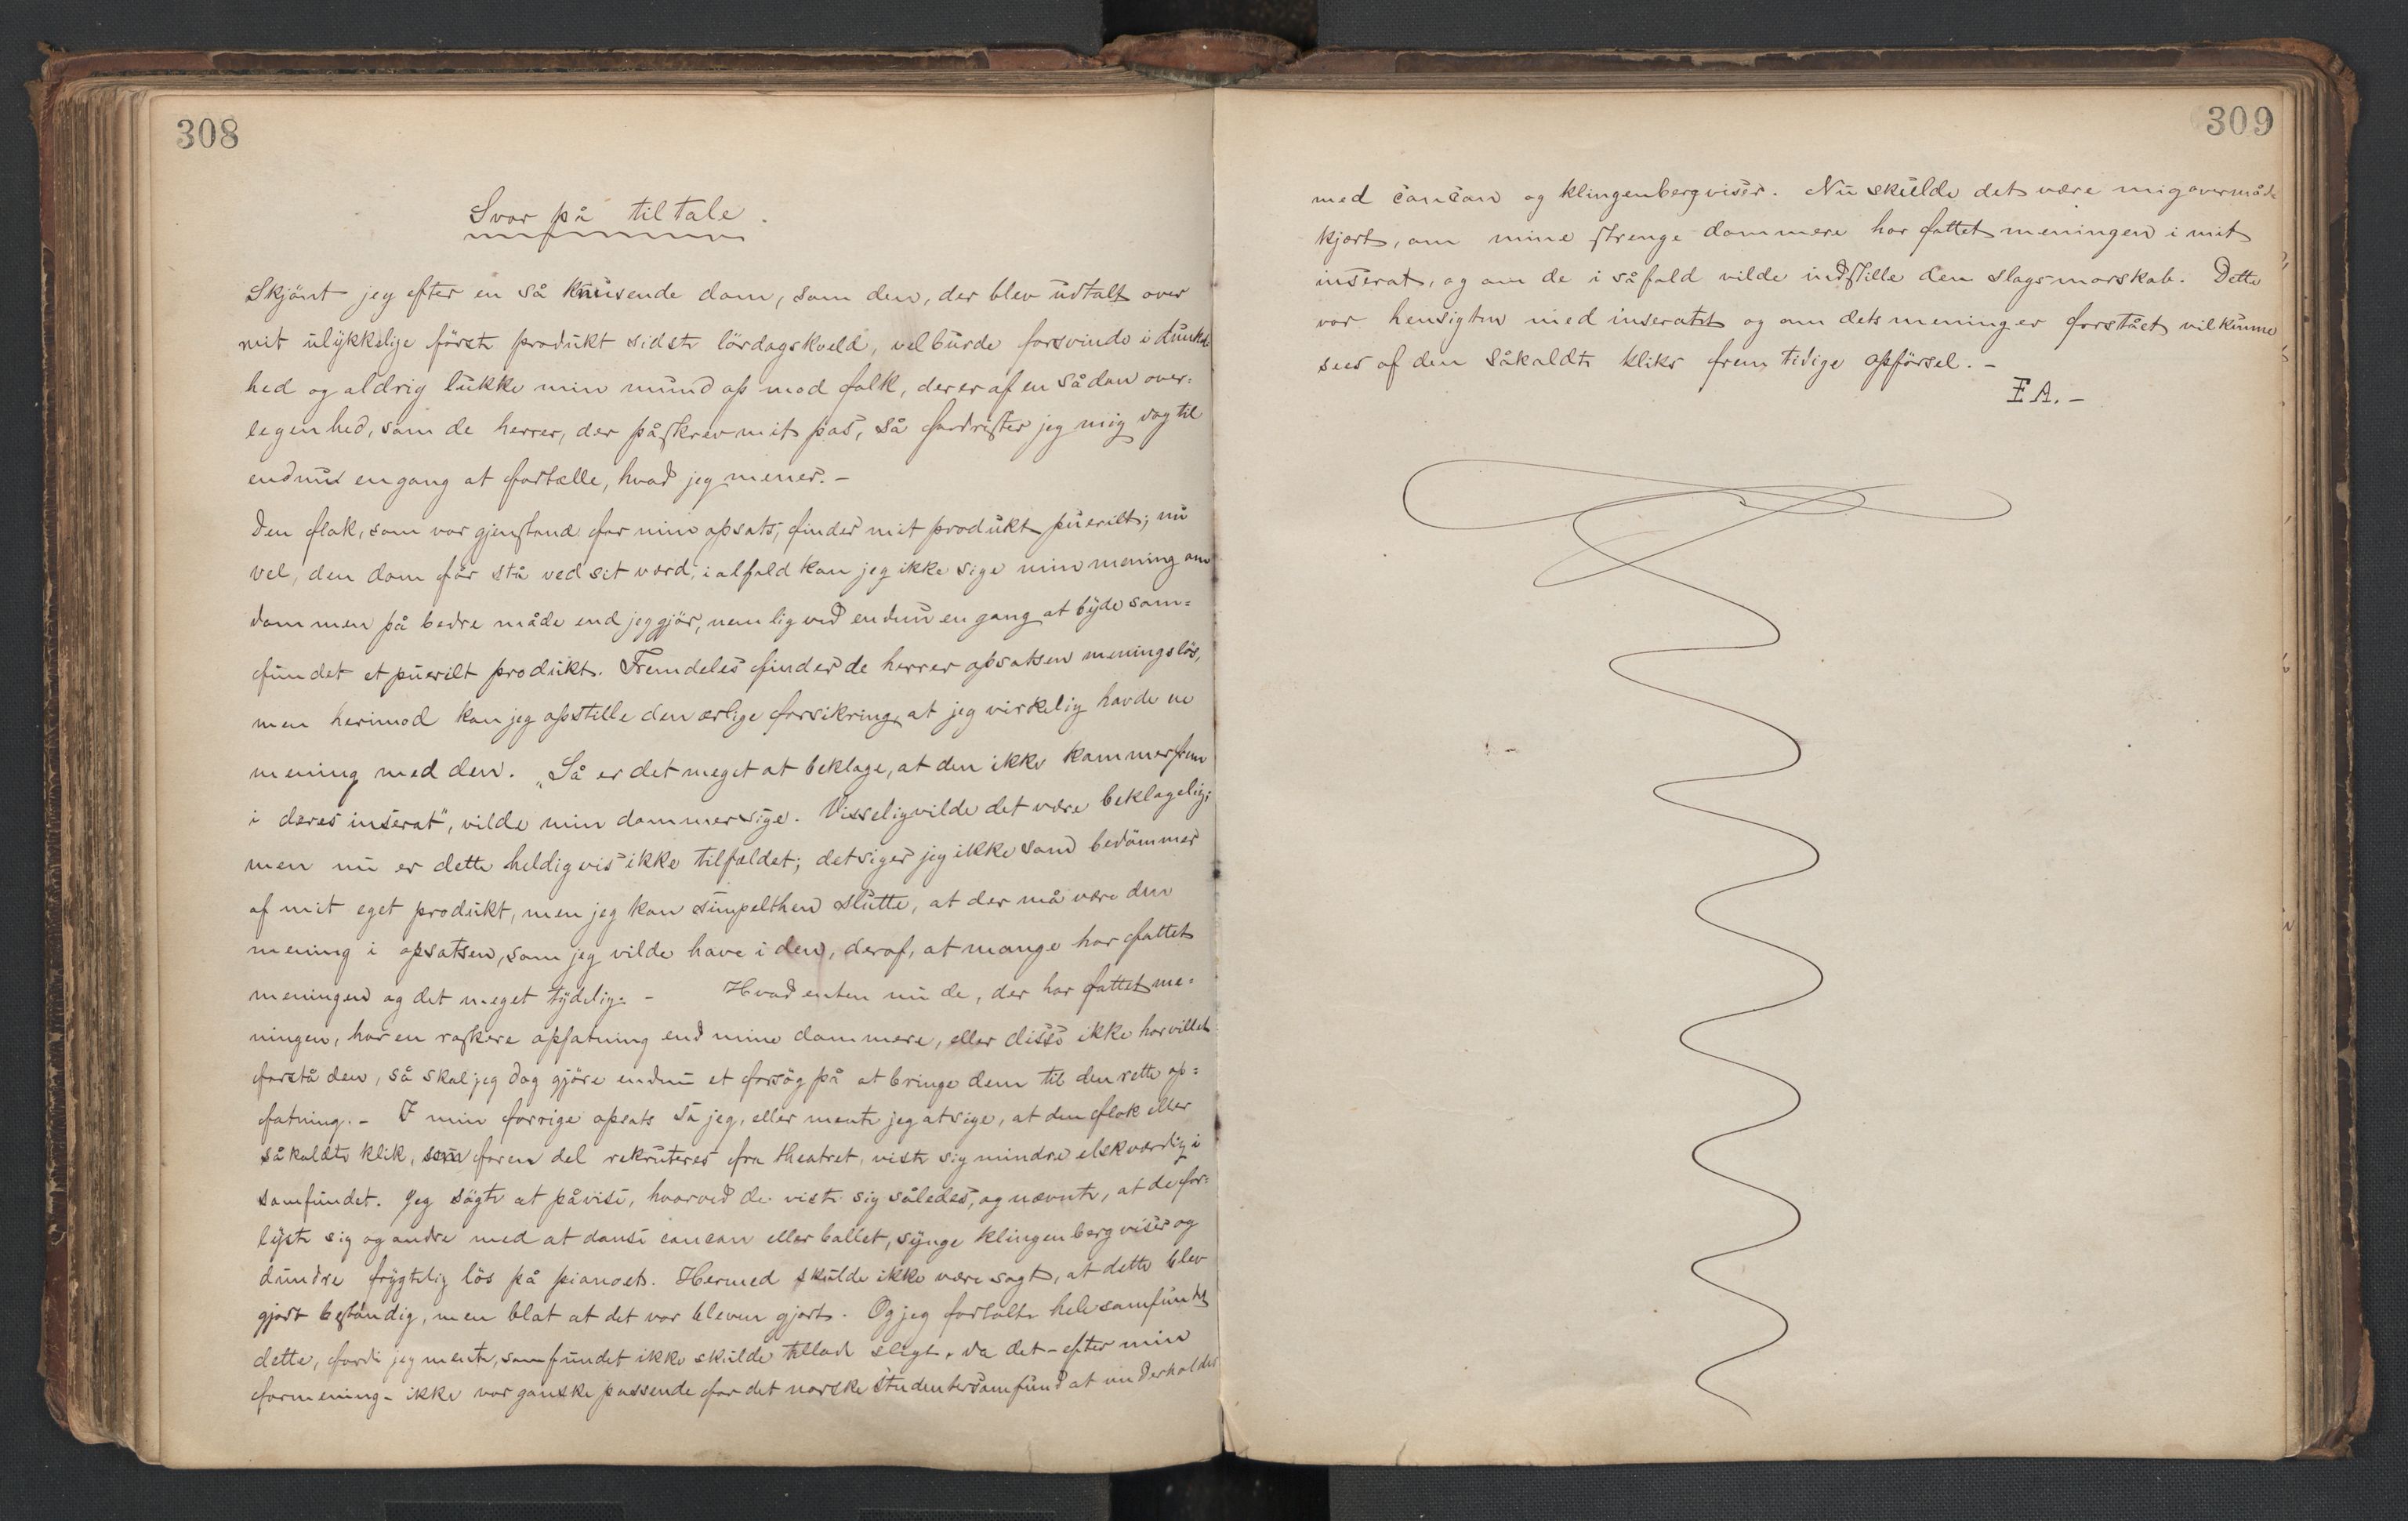 308
Svar på tiltale.
Skjönt jeg efter en så knusende dom, som den, der blev udtalt over
mit ulykkelige förste produkt sidste lördagskveld, vel burde forsvinde i dunkel
hed og aldrig lukke min mund op mod folk, der er af en sådan over-
legenhed, som de herrer, der påskrev mit pas, så fordrister jeg mig dog til
endnu engang at fortælle, hvad jeg mener. -
Den flok, som var gjenstand for min opsats, finder mit produkt puerilt; nu
vel, den dom får stå ved sit værd, i alfald kan jeg ikke sige min mening om
dommen på bedre måde end jeg gjör, nemlig ved endnu en gang at byde sam-
fundet et puerilt produkt. Fremdeles finder de herrer opsatsen meningslös,
men herimod kan jeg opstille den ærlige forsikring, at jeg virkelig havde en
mening med den. „Så er det meget at beklage, at den ikke kommer frem
i deres inserat", vilde min dommer sige. Visselig vilde det være beklagelig;
men nu er dette heldigvis ikke tilfældet; det siger jeg ikke som bedömmer
af mit eget produkt, men jeg kan simpelthen slutte, at der må være den
mening i opsatsen, som jeg vilde have i den, deraf, at mange har fattet
meningen og det meget tydelig. - Hvad enten nu de, der har fattet me-
ningen, har en raskere opfatning end mine dommere, eller disse ikke har villet
forstå den, så skal jeg dog gjöre endnu et forsög på at bringe dem til den rette op-
fatning. - I min forrige opsats sa jeg, eller mente jeg at sige, at den flok eller
såkaldte klik, som for en del rekruteres fra theatret, viste sig mindre elskværdig i
samfundet. Jeg sögte at påvise, hvorved de viste sig således, og nævnte, at de for-
lyste sig og andre med at danse cancan eller ballet, synge klingenbergviser og
dundre frygtelig lös på pianoet. Hermed skulde ikke være sagt, at dette blev
gjort bestandig, men blot at det var bleven gjort. Og jeg fortalte hele samfundet
dette, fordi jeg mente, samfundet ikke skulde tillade sligt, da det - efter min
formening - ikke var ganske passende for det norske studentersamfund at underholdes
309
med cancan og klingenbergviser. Nu skulde det være mig overmåde
kjært, om mine strenge dommere har fattet meningen i mit
inserat, og om de i såfald vilde indstille den slags morskab. Dette
var hensigten med inseratet og om dets mening er forstået vil kunne
sees af den såkaldte kliks fremtidige opförsel. -
F A. -